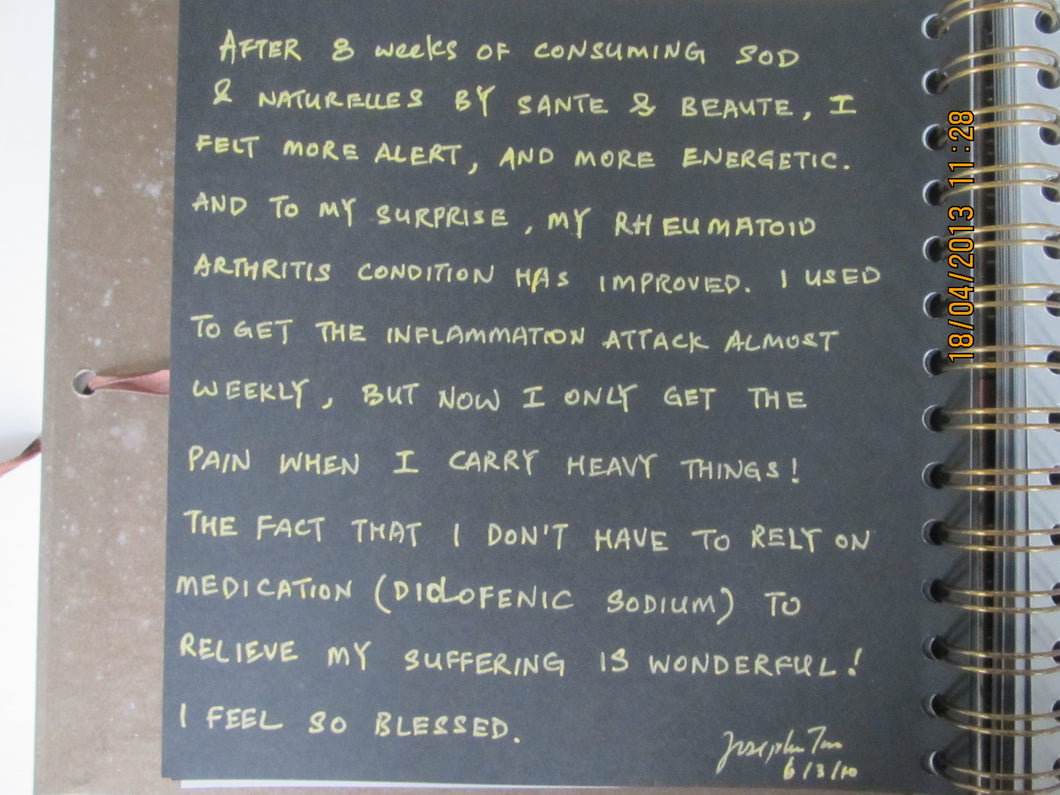 AFTER 8 weeks OF CONSUMING SOD
& NATURELLES BY SANTE & BEAUTE, I
FELT MORE ALERT, AND MORE ENERGETIC.
AND TO MY SURPRISE, MY RHEUMATOID
ARTHRITIS CONDITION HAS IMPROVED. I USED
TO GET THE INFLAMMATION ATTACK ALMOST
WEEKLY, BUT NOW I ONLY GET THE
PAIN WHEN I CARRY HEAVY THINGS!
THE FACT THAT I DON'T HAVE TO RELY ON
MEDICATION (DICLOFENIC SODIUM) TO
RELIEVE MY SUFFERING IS WONDERFUL!
I FEEL SO BLESSED.
Joseph Tan
6/3/10
18/04/2013 11:28